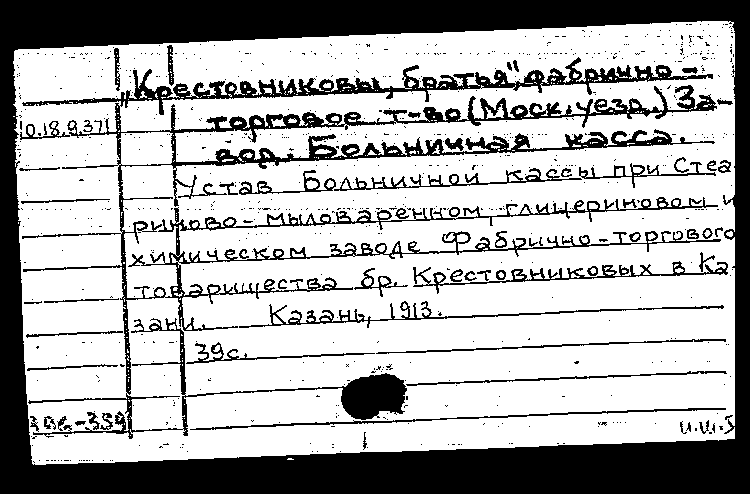 „Крестовниковы, братья", фабрично-
торговое т-во (Моск. уезд.) За-
10.18.9.371
вод. Больничная касса.
Устав Больничной кассы при Стеа
риново-мыловаренном, глицериновом и
химическом заводе Фабрично-торгового
товарищества бр. Крестовниковых в Ка-
зани. Казань, 1913.
39с.